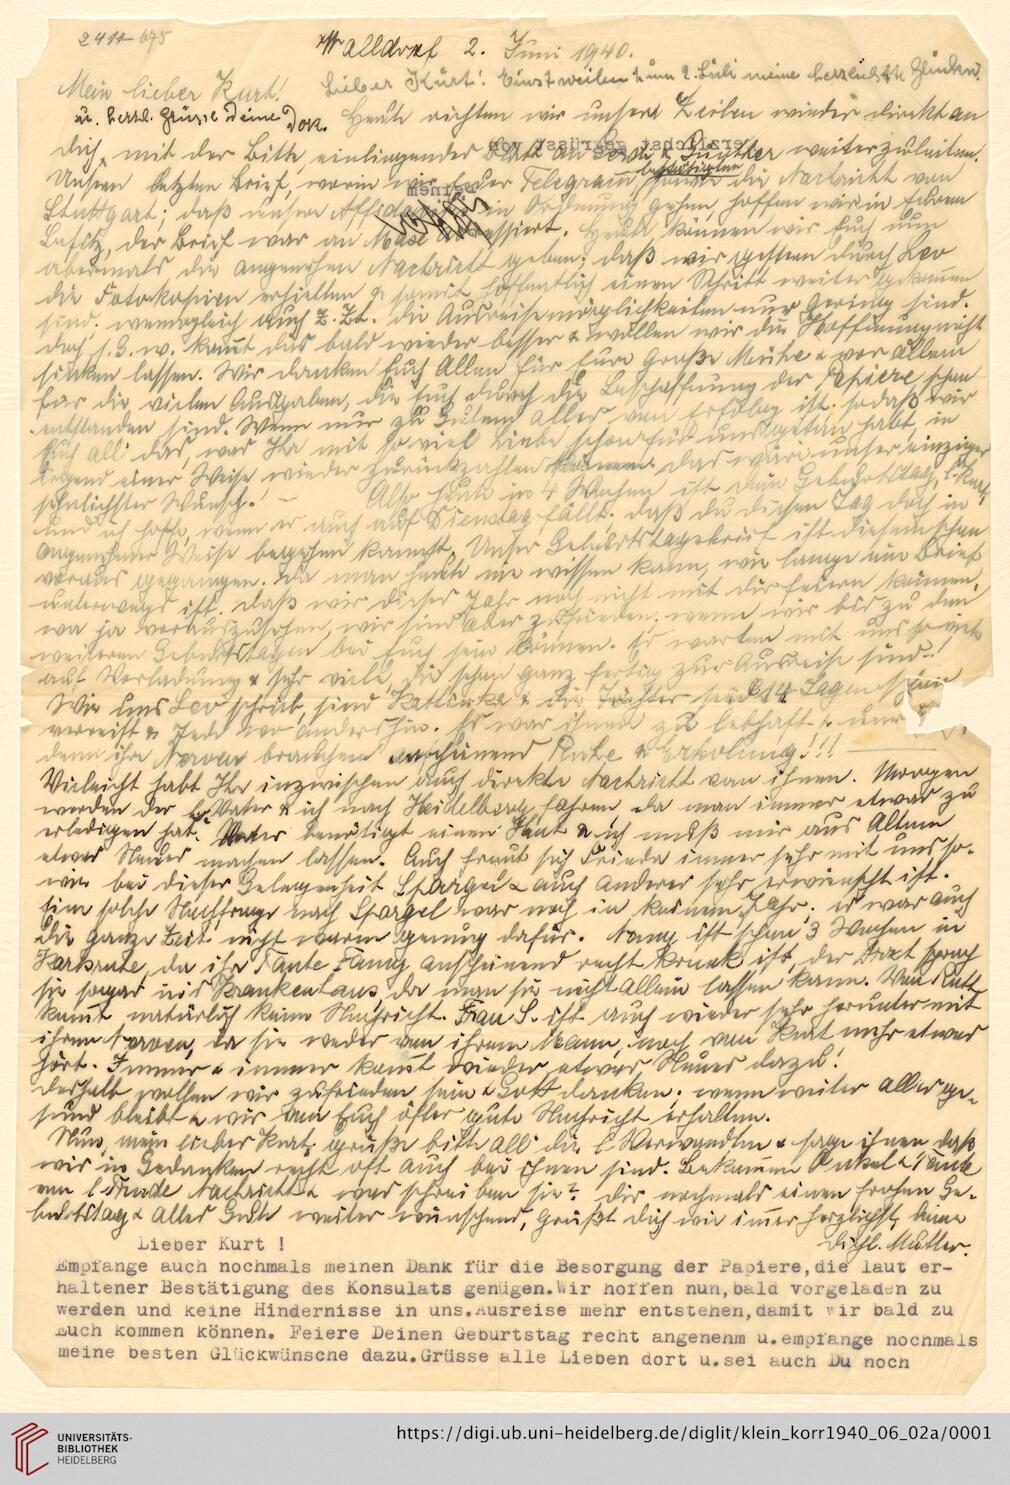 2411-675
Walldorf 2. Juni 1940.
Mein lieber Kurt! Lieber Kurt! Einstweilen z. um 2. Juli meine herzlichste Glückw.
u. herzl. Grüsse Deine Heute richten wir unsere Zeilen wieder direkt an
dich, mit der Bitte, einliegender an Gerda & weiterzuleiten.
Unsern letzten Brief, worin wir Euer Telegramm bestätigten die Nachricht von
Stuttgart; daß unsere Affidavit in Ordnung gehen, hoffen wir in Eurem
Besitz, der Brief war an Max adressiert. Heute können wir Euch nun
abermals die angenehme Nachricht geben; daß wir gestern durch Leo
die Fotokopien erhielten & somit hoffentlich einen Schritt weiter gekommen
sind. wenngleich auch z. Zt. die Ausreisemöglichkeiten nur gering sind.
doch s. G. w. kommt das bald wieder besser & wollen wir die Hoffnung nicht
sinken lassen. Wir danken Euch Allen für Eure große Mühe & vor allem
für die vielen Ausgaben, die Euch durch die Beschaffung der Papiere schon
entstanden sind. Wenn nur zu Gutem alles von Erfolg ist, sodaß wir
Euch all das, was Ihr mit so viel Liebe schon für uns getan habt, in
irgend einer Weise wieder zurückzahlen können. das wäre unser einziger
sehnlichster Wunsch! — Also heute in 4 Wochen ist dein Geburtstag, l. Kurt,
und ich hoffe, wenn er auch auf Dienstag fällt. daß du diesen Tag doch in
angenehmer Weise begehen kannst. Unser Geburtstagsbrief ist diesem schon
voraus gegangen. da man heute nie wissen kann, wie lange ein Brief
unterwegs ist. daß wir dieses Jahr noch nicht mit dir feiern können,
war ja vorauszusehen, wir sind aber zufrieden. wenn wir bis zu dem
weiteren Geburtstagen bei Euch sein können. Es warten mit uns so viele
auf Verladung & sehr viele, die schon ganz fertig zur Ausreise sind..!
Wie uns Leo schrieb, sind & die Töchter seit 14 Tagen
verreist & Jede wo anders hin. Es war ihnen zu lebhaft &
denn ihre Nerven brauchen anscheinend Ruhe & Erholung!!! —
Vielleicht habt Ihr inzwischen auch direkte Nachricht von ihnen. Morgen
werden der l. Vater & ich nach Heidelberg fahren da man immer etwas zu
erledigen hat. Vater benötigt einen Hut & ich muß mir aus Altem
etwas Neues machen lassen. Auch freut sich Frieda immer sehr mit uns so-
wie bei dieser Gelegenheit Spargel & auch anderes sehr erwünscht ist.
Eine solche Nachfrage nach Spargel war noch in keinem Jahr; es war auch
die ganze Zeit nicht warm genug dafür. Nany ist schon 3 Wochen in
Karlsruhe, da ihre Tante Fanny anscheinend recht krank ist, der Arzt sprach
sie sogar ins Krankenhaus, da man sie nicht allein lassen kann. Von Ruth
kommt natürlich keine Nachricht. Frau S. ist auch wieder sehr herunter mit
ihren Nerven, da sie weder von ihrem Mann, noch von Kurt mehr etwas
hört. Immer & immer kommt wieder etwas Neues dazu!
deshalb wollen wir zufrieden sein & Gott danken; wenn weiter alles ge-
sund bleibt & wir von Euch öfter gute Nachricht erhalten.
Nun, mein lieber Kurt, grüße bitte all die l. Verwandten & sage ihnen daß
wir in Gedanken recht oft auch bei ihnen sind. Bekommen Onkel & Tante
von l. Trude Nachricht & was schreiben sie? Dir nochmals einen frohen Ge-
burtstag & alles Gute weiter wünschend, grüßt dich wie immer herzlichst, deine
dichl. Mutter.
Lieber Kurt !
Empfange auch nochmals meinen Dank für die Besorgung der Papiere,die laut er-
haltener Bestätigung des Konsulats genügen.Wir hoffen nun,bald vorgeladen zu
werden und keine Hindernisse in uns.Ausreise mehr entstehen,damit wir bald zu
Euch kommen können. Feiere Deinen Geburtstag recht angenehm u.empfange nochmals
meine besten Glückwünsche dazu.Grüsse alle Lieben dort u.sei auch Du noch
UNIVERSITÄTS-
BIBLIOTHEK
HEIDELBERG
https://digi.ub.uni-heidelberg.de/diglit/klein_korr1940_06_02a/0001